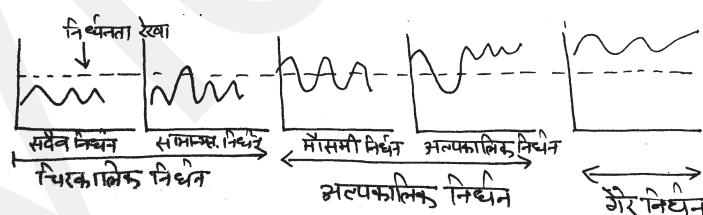 निर्धनता रेखा
सदैव निर्धन सामान्यत. निर्धन मौसमी निर्धन अल्पकालिक निर्धन
चिरकालिक निर्धन अल्पकालिक निर्धन गैर निर्धन